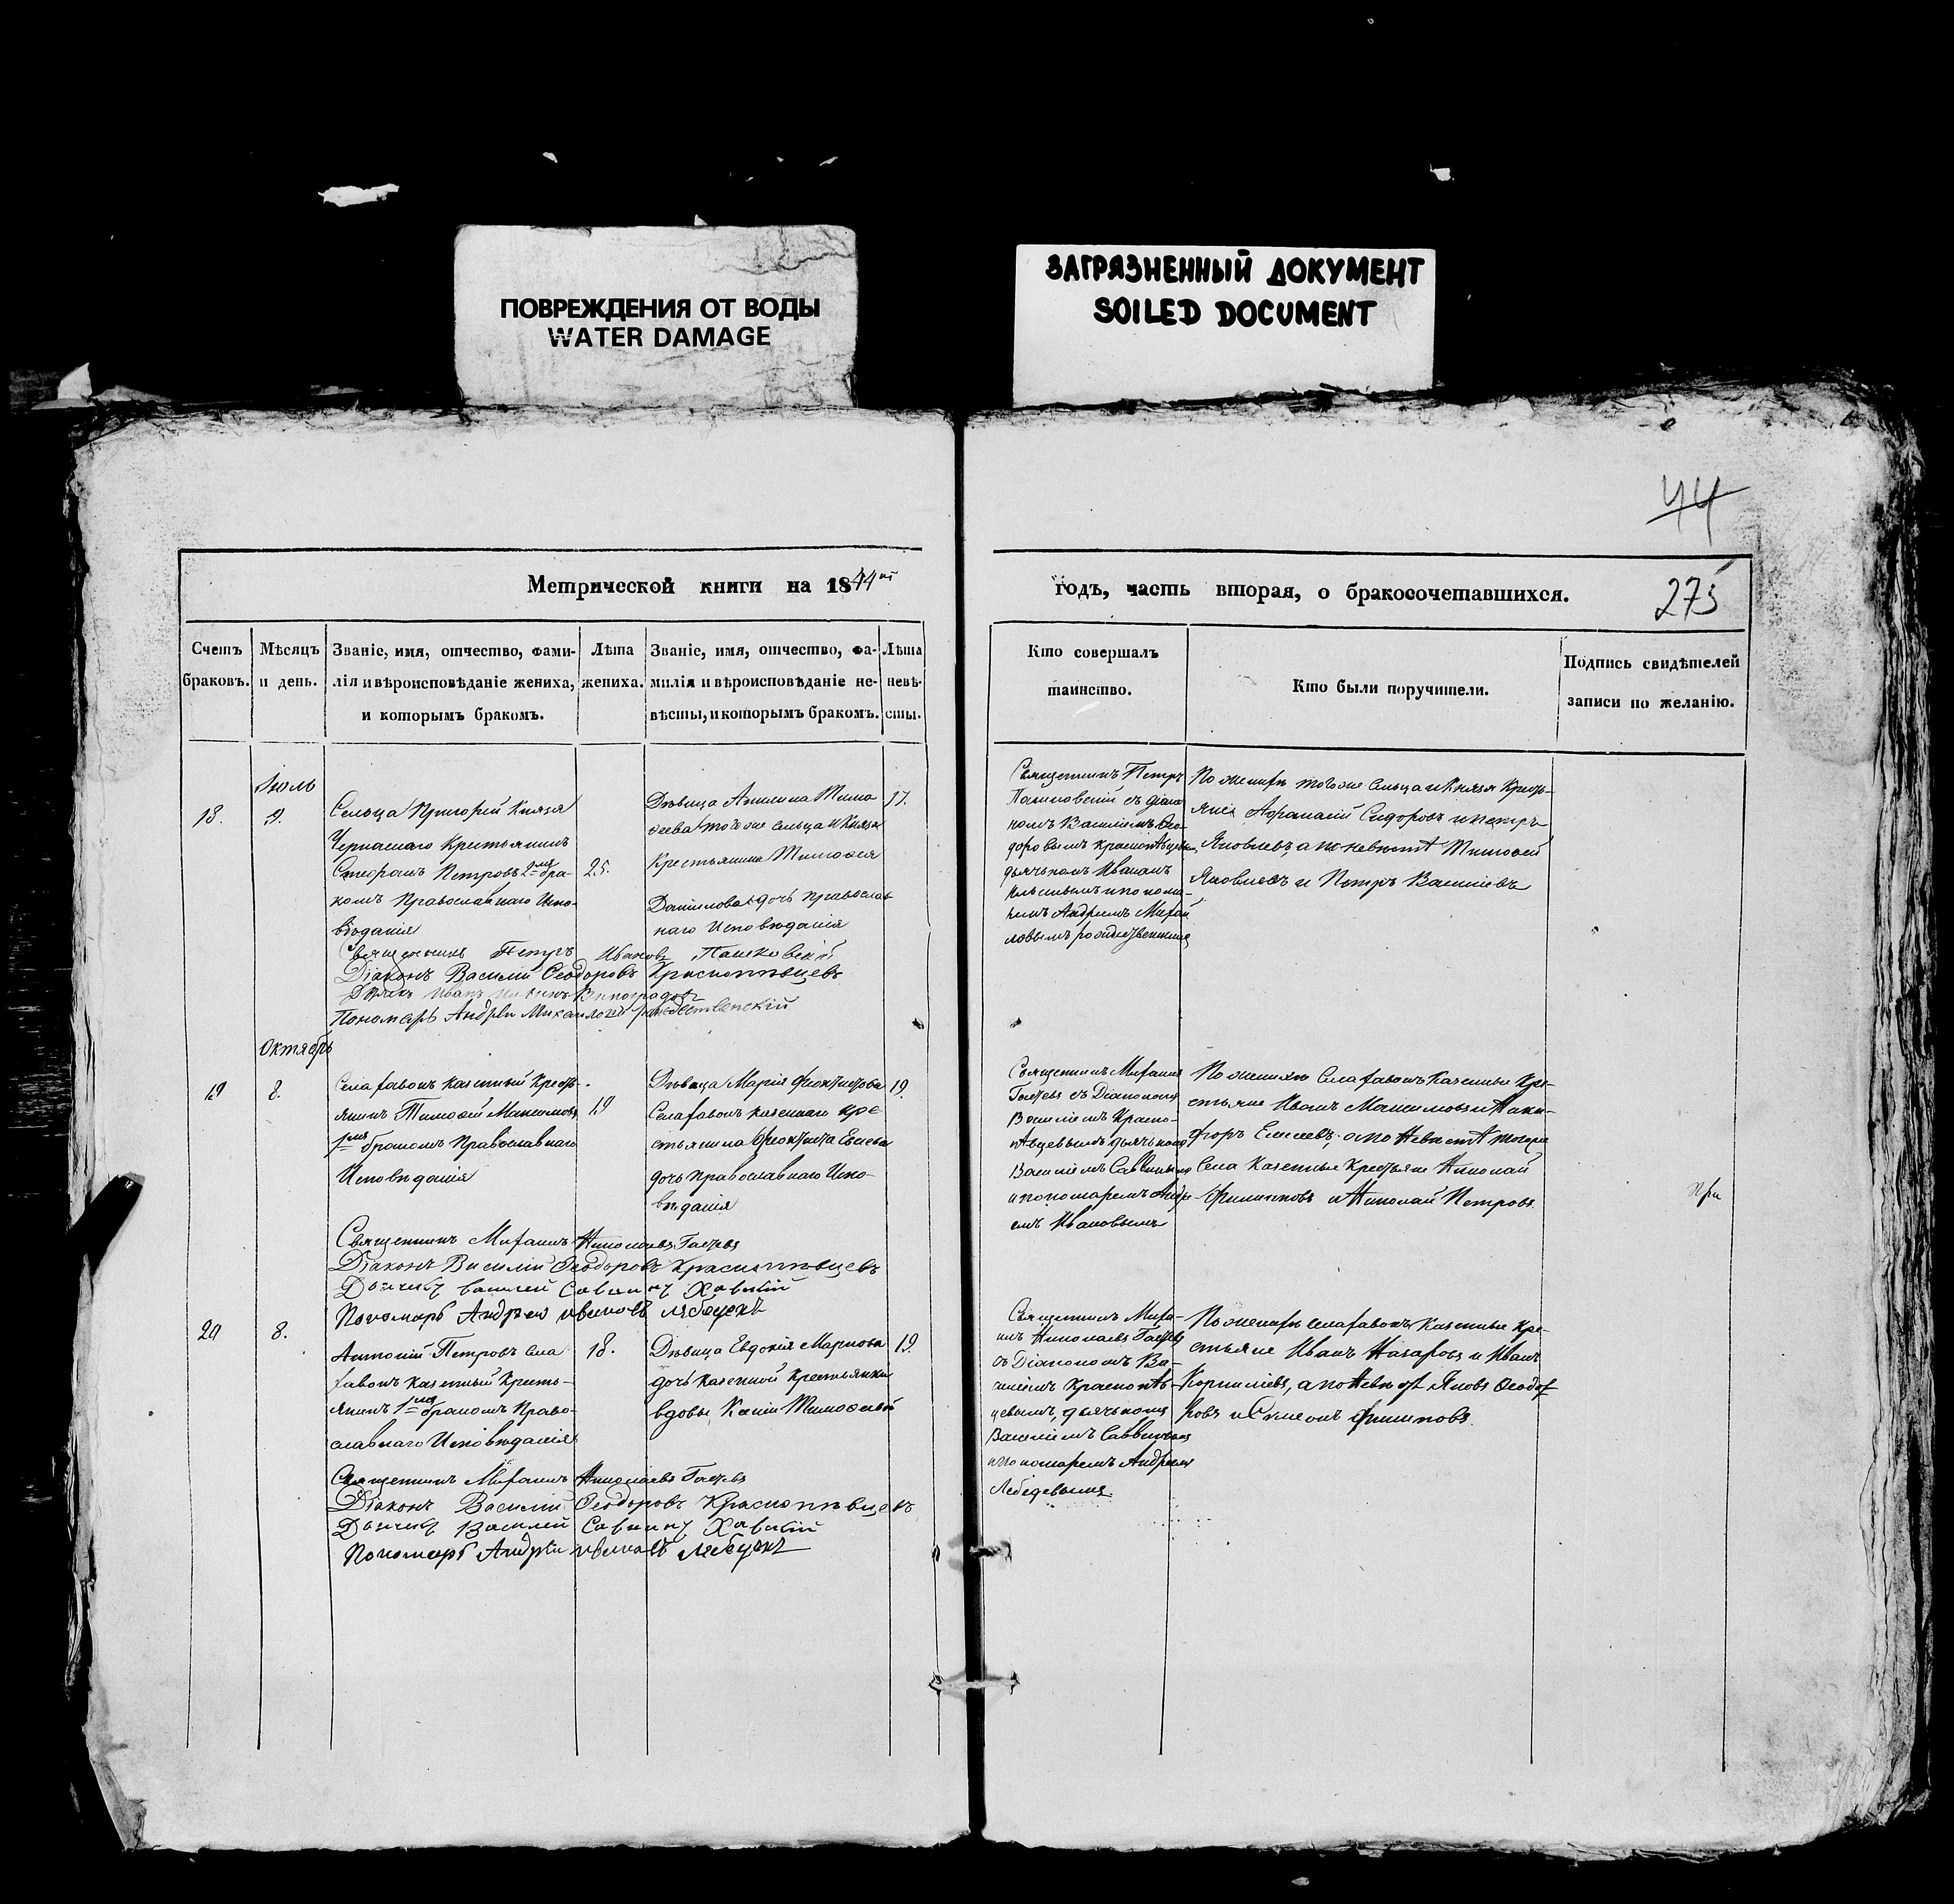 ПОВРЕЖДЕНИЯ ОТ ВОДЫ
WATER DAMAGE
ЗАГРЯЗНЕННЫЙ ДОКУМЕНТ
SOILED DOCUMENT
44
Метрической книги на 1844 й
годъ, часть вторая, о бракосочетавшихся.
275
Счетъ браковъ.
Мѣсяцъ и день.
Званіе, имя, отчество, фами-
лія и вѣроисповѣданіе жениха,
и которымъ бракомъ.
Лѣта
жениха.
Званіе, имя, отчество, фа-
милія и вѣроисповѣданіе не-
вѣсты, и которымъ бракомъ.
Лѣта
невѣ-
сты.
Кто совершалъ
таинство.
Кто были поручители.
Подпись свидѣтелей
записи по желанію.
Июль
18.
9.
Сельца Князя
Крестьянинъ
Петровъ 2мъ бра-
комъ Православнаго Испо-
вѣданія
25.
Дѣвица Тимо
ѳеева того же Сельца и Князя
Крестьянина Тимоѳея
Данилова дочь Православ
наго Исповѣданія
17.
Священникъ Петръ
съ діако
номъ Василіемъ Ѳео-
доровымъ Краснопѣвцевымъ
дьячкомъ Иваномъ
и понома-
ремъ Андреемъ Михай
ловымъ рождественскимъ
По женихѣ того же Сельца и Князя Кресть-
яне Афанасій Сидоровъ и Петръ
Яковлевъ, а по невѣстѣ Тимоѳей
Яковлевъ и Петръ Василіевъ
Священникъ Петръ Ивановъ
Діаконъ Василій Ѳеодоровъ Краснопѣвцевъ
Иванъ Виноградовъ
Пономарь Андрей Михайловъ рождественскій
Октябрь
19
8.
Села Хавокъ Казенный Кресть-
янинъ Тимоѳей Максимовъ
1мъ бракомъ Православнаго
Исповѣданія
19
Дѣвица Марія Ѳеоктистова
Села Хавокъ казеннаго Кре
стьянина Ѳеоктиста Елисеева
дочь Православнаго Испо-
вѣданія
19.
Священникъ Михаилъ
съ Діакономъ
Василіемъ Красно-
пѣвцевымъ дьячкомъ
Василіемъ Саввинымъ
и пономаремъ Андре
емъ Ивановымъ
По женихѣ Села Хавокъ Казенные Кре-
стьяне Иванъ Максимовъ и Ники-
форъ Елисеевъ, а по Невѣстѣ тогоже
Села Казенные Крестьяне Николай
Филиповъ и Николай Петровъ.
при
Священникъ Михаилъ Николаевъ
Діаконъ Василій Ѳеодоровъ Краснопѣвцевъ
Василій Савинъ Хавскій
Пономарь Андрей Ивановъ
20
8.
Антоній Петровъ Села
Хавокъ Казенный Кресть-
янинъ 1мъ бракомъ Право-
славнаго Исповѣданія
18.
Дѣвица Евдокія Маркова
дочь Казенной Крестьянки
вдовы Тимоѳеевой
19.
Священникъ Миха-
илъ Николаевъ
съ Діакономъ Ва-
силіемъ Краснопѣ-
цевымъ, дьячкомъ
Василіемъ Саввинымъ
и пономаремъ Андреемъ
Лебедевымъ
По женихѣ Села Хавокъ Казенные Кре-
стьяне Иванъ Назаровъ и Иванъ
Корниліевъ, а по Невѣстѣ Яковъ Ѳеодо-
ровъ и Симеонъ Филиповъ.
Священникъ Михаилъ Николаевъ
Діаконъ Василій Ѳеодоровъ Краснопѣвцевъ
Василій Савинъ Хавскій
Пономарь Андрей Ивановъ